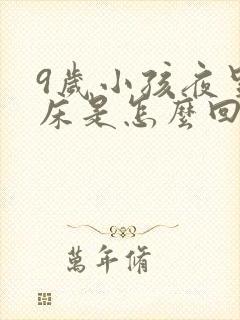 9歲小孩夜
床是怎麼回
萬年脩